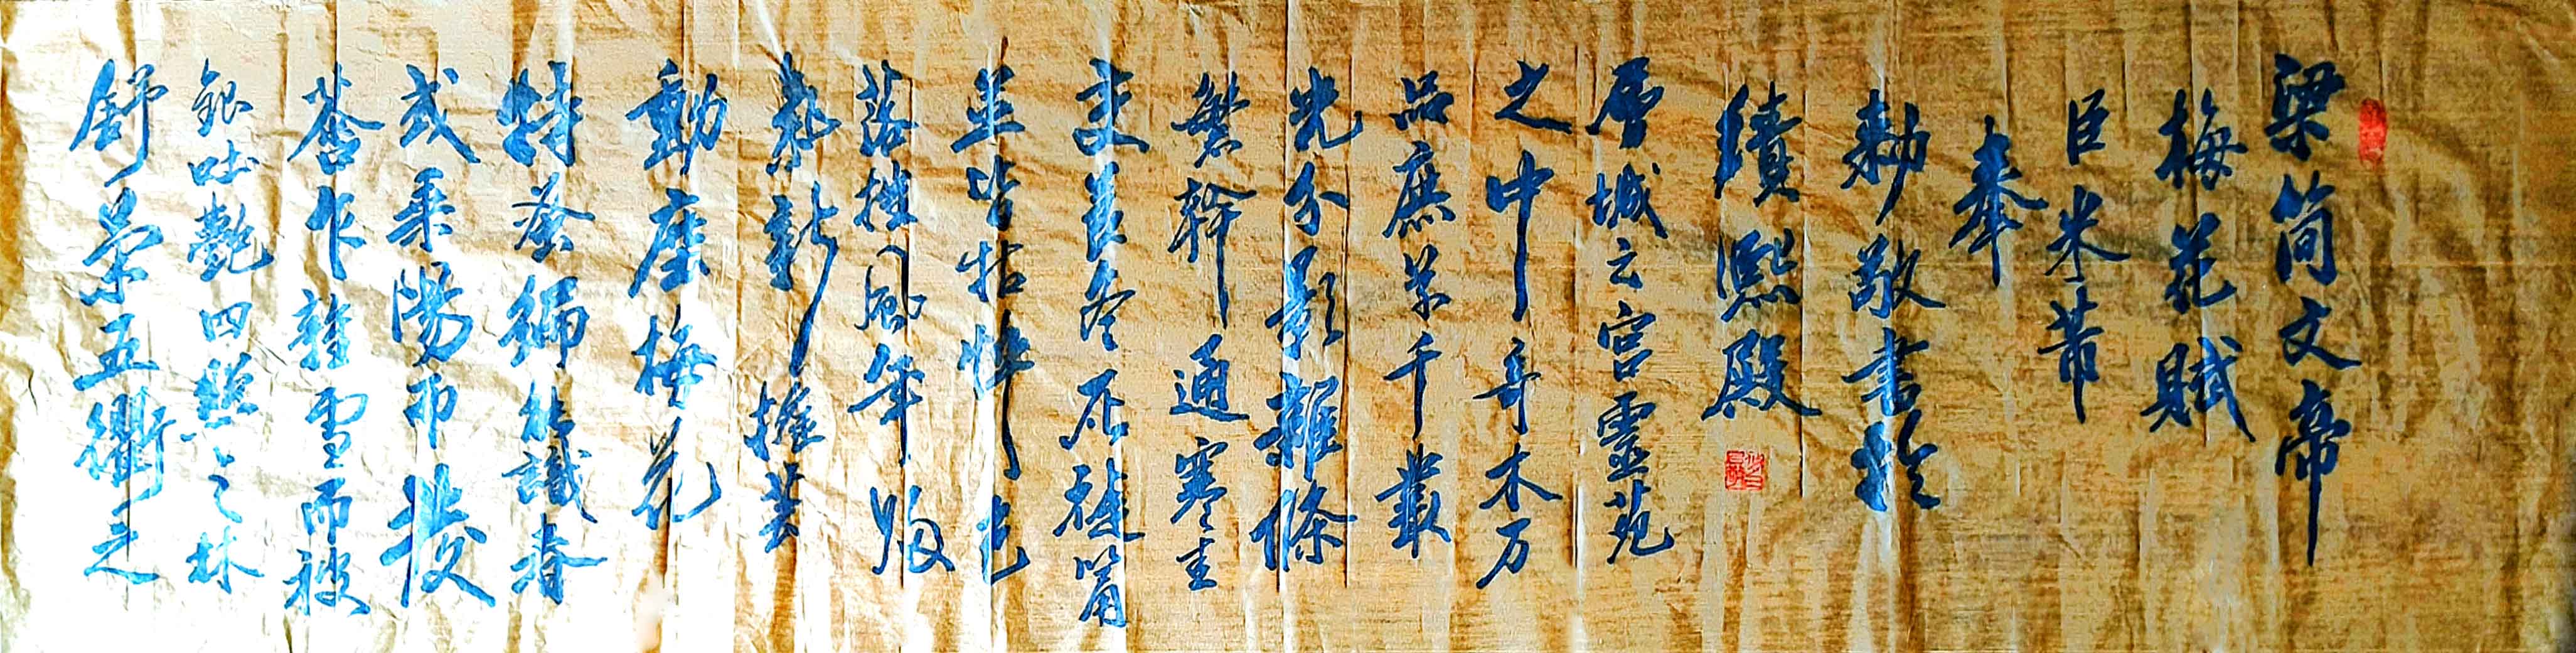 梁简文帝
梅花賦
臣米芾
奉
勅敬書於
績熙殿
層城云宫靈苑
之中奇木万
品庶草千叢
光分影雜條
繁幹通寒圭
变節冬灰徙筩
並皆枯悴色
落摧風年歸
氣新擢芸
動塵梅花
特蚤偏能識春
或承陽而發
蒼乍雜雪而被
銀吐艷四照之林
舒榮五衢之